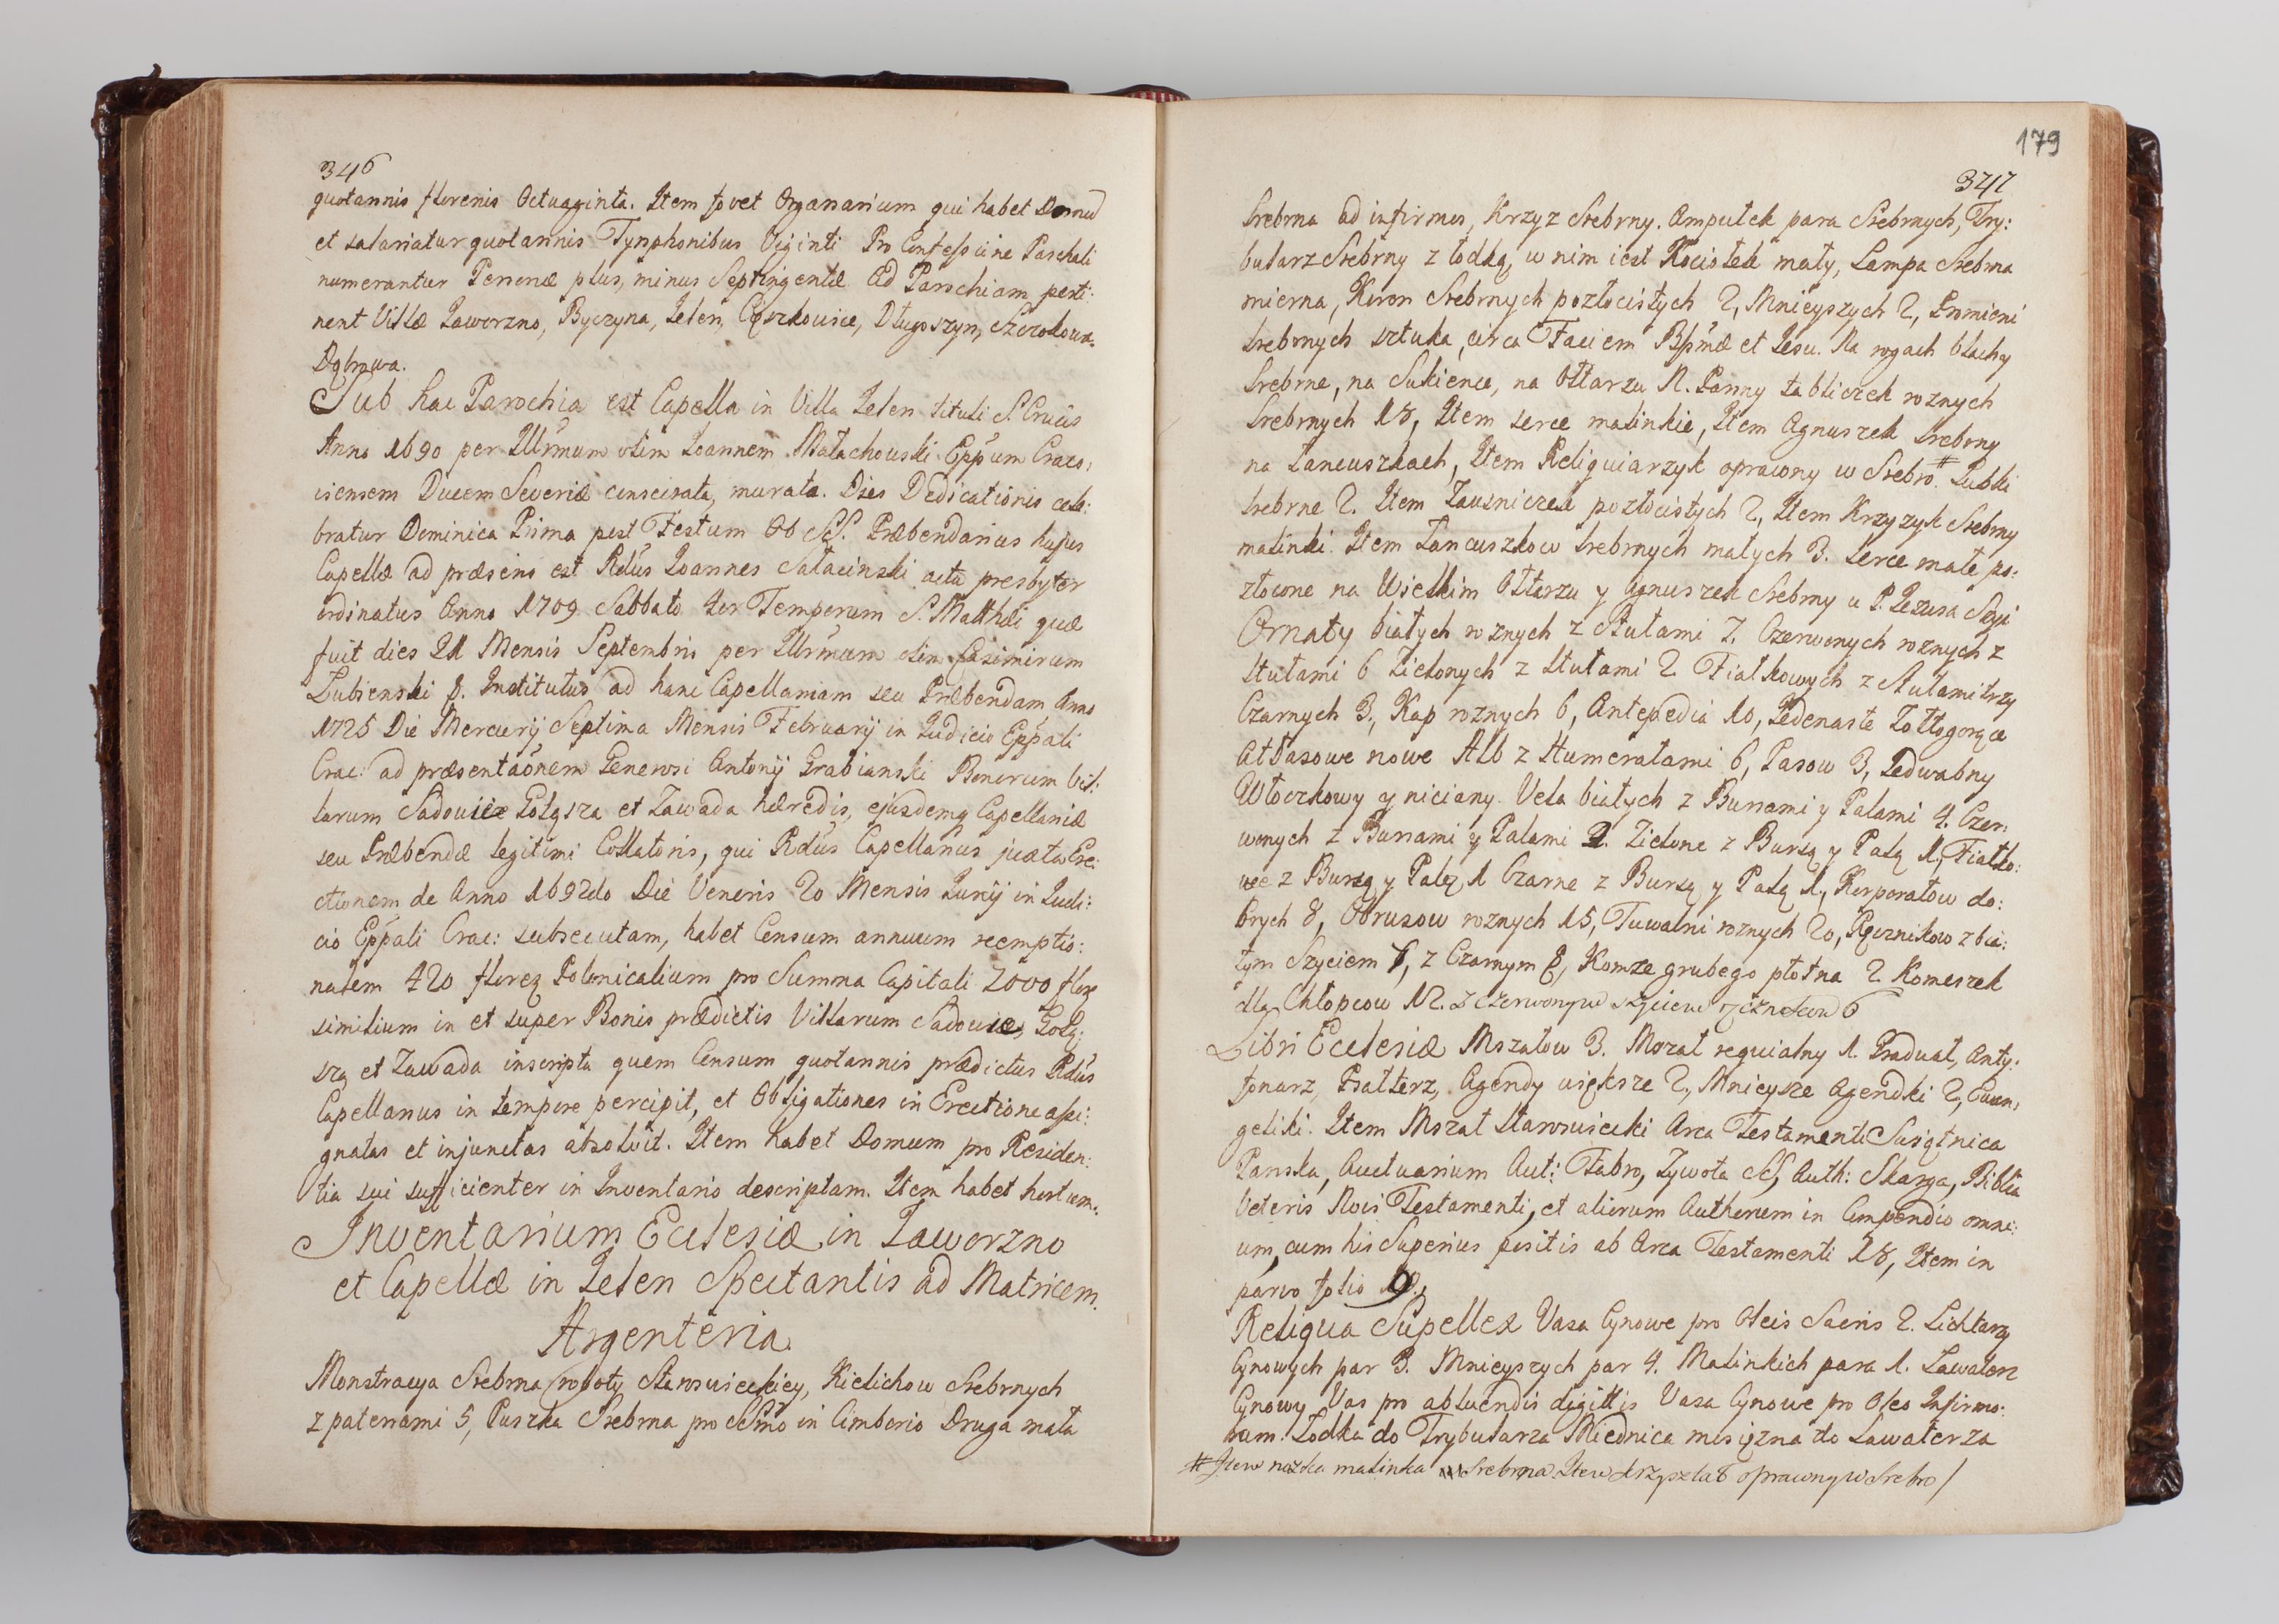 346
quotannis florenis Octuaginta. Item fovet Organarium qui habet Domum
et salariatur quotannis Tynphonibus Viginti Pro Confessione Paschali
numerantur Personæ plus, minus Septingentæ Ad Parochiam perti:
nent Villæ Jaworzno, Byczyna, Jelen, Cięszkowice, Długoszyn, Szczokowa.
Dąbrowa.
Sub hac Parochia est Capella in Villa Jelen tituli S. Crucis
Anno 1690 per Illr̃mum olim Joannem Małachowski Epp̃um Craco,
viensem Ducem Severiæ consecrata, murata. Dies Dedicationis cele:
bratur Dominica Prima post Festum Oo SS. Præbendarius hujus
Capellæ ad præsens est Rdũs Joannes Sałacinski acta presbyter
ordinatus Anno 1709 Sabbato 4or Temporum S. Matthæi quæ
fuit dies 21 Mensis Septembris per Illr̃mum olim Casimirum
Łubienski Institutus ad hanc Capellaniam seu Præbendam Anno
1725 Die Mercurij Septima Mensis Februarij in Judicio Epp̃ali
Crac: ad præsentaõnem Generosi Antonij Grabianski Bonorum Vil:
larum Sadowie Gołąsza et Zawada hæredis, ejusdemq Capellaniæ
seu Præbendæ legitimi Collatoris, qui Rdũs Capellanus juxta Ere:
ctionem de Anno 1692do Die Veneris 20 Mensis Junij in Judi:
cio Epp̃ali Crac: subsecutam, habet Censum annuum reemptio:
nalem 420 florez Polonicalium pro Summa Capitali 2000 floz
similium in et super Bonis prædictis Villarum Sadowie, Gołą:
szą et Zawada inscripta quem Censum quotannis prædictus Rdũs
Capellanus in tempore percipit, et Obligationes in Erectione assi:
gnatas et injunctas absolvit. Item habet Domum pro Residen:
tia sui sufficienter in Inventario descriptam. Item habet hortum.
Inventarium Ecclesiæ in Jaworzno
et Capellæ in Jelen Spectantis ad Matricem.
Argenteria.
Monstracya Srebrna roboty Staroswieckiey, Kielichow Srebrnych
z patenami 5, Puszka Srebrna pro SSm̃o in Cimborio Druga mała
179
347
Srebrna ad infirmos, Krzyz Srebrny. Ampułek para Srebrnych, Try:
bularz Srebrny z łodką, w nim iest Kociołek mały, Lampa Srebrna
mierna, Koron Srebrnych pozłocistych 2, Mnieyszych 2, Promieni
srebrnych sztuka, circa Faciem Bssm̃æ et Jesu. Na rogach blachy
Srebrne, na Sukience, na Ołtarzu N. Panny tabliczek roznych
Srebrnych 18, Item serce malinkie, Item Agnuszek Srebrny
na Lancuszkach, Item Reliquiarzyk oprawny w Srebro # Lubki
Srebrne 2. Item Zauszniczek pozłocistych 2, Item Krzyzyk Srebrny
malinki. Item Lancuszkow Srebrnych małych 3. Serce małe po:
złocone na Wielkim Ołtarzu y Agnuszek Srebrny u P. Jezusa Szyi
Ornaty białych roznych z Stułami 7. Czerwonych roznych z
Stułami 6 Zielonych z Stułami 2 Fiałkowych z Stułami trzy
Czarnych 3., Kap roznych 6, Antepedia 10, Jedenaste Zołtogorące
Atłasowe nowe Alb z Humerałami 6, Pasow 3, Jedwabny
Włoczkowy y niciany. Vela białych z Bursami y Palami 4. Czer,
wonych z Bursami y Palami 2. Zielone z Bursą y Palą 1., Fiałko:
we z Bursą y Palą 1 Czarne z Bursą y Palą 1., Korporałow do:
brych 8, Obrusow roznych 15, Tuwalni roznych 20, Ręcznikow z bia:
łym Szyciem, z Czarnym 8, Komze grubego płotna 2 Komeszek
dla Chłopcow 12. z czerwonym szyciem ręcznikow 6
Libri Ecclesiæ Mszałow 3. Mszał requialny 1. Graduał, Anty:
fonarz, Psałterz, Agendy większe 2., Mnieysze Agendki 2, Ewan,
geliki. Item Mszał Staroswiecki Arca Testamenti Swiątnica
Panska, Auctuarium Aut: Fabro, Zywota SS, Auth: Skarga, Biblia
Veteris Novi Testamenti, et aliorum Authorum in Compendio omni:
um, cum his Superius positis ab Arca Testamenti 18, Item in
parvo folio 9.
Reliqua Supellex Vasa Cynowe pro Oleis Sacris 2. Lichtarzy
Cynowych par 3. Mnieyszych par 4. Malinkich para 1. Lawaterz
Cynowy Vas pro abluendis digittis Vasa Cynowe pro Oleo Infirmo:
rum. Łodka do Trybularza Miednica mosięzna do Lawaterza
# Item nozka malinka Srebrna Item krzyształ oprawny w Srebro /